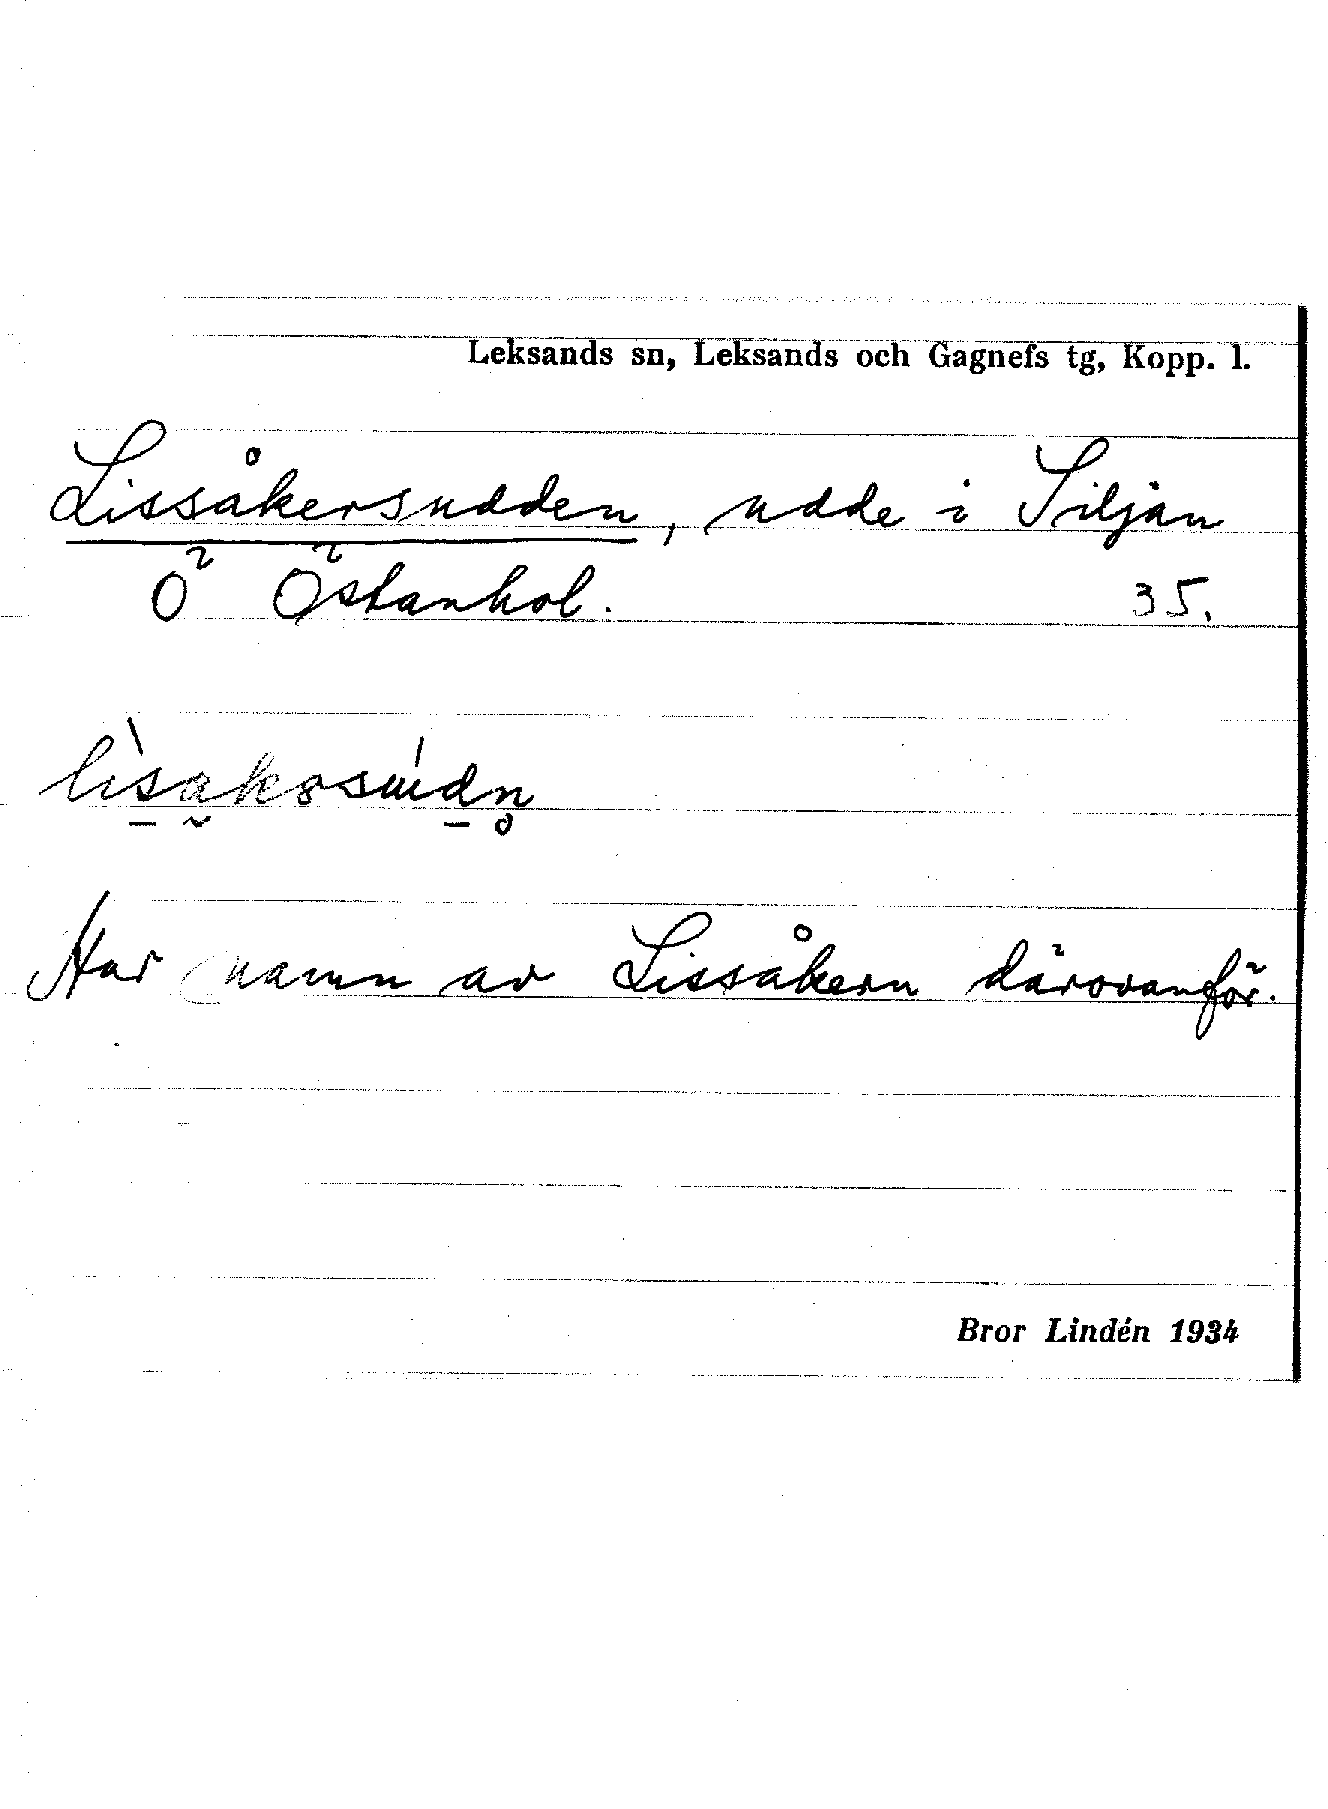 Leksands sn, Leksands och Gagnefs tg, Kopp. l.
Lissåkersudden, udde i Siljan
Ö Östanhol. 35.
Har namn av Lissåkern därovanför.
Bror Lindén 1934